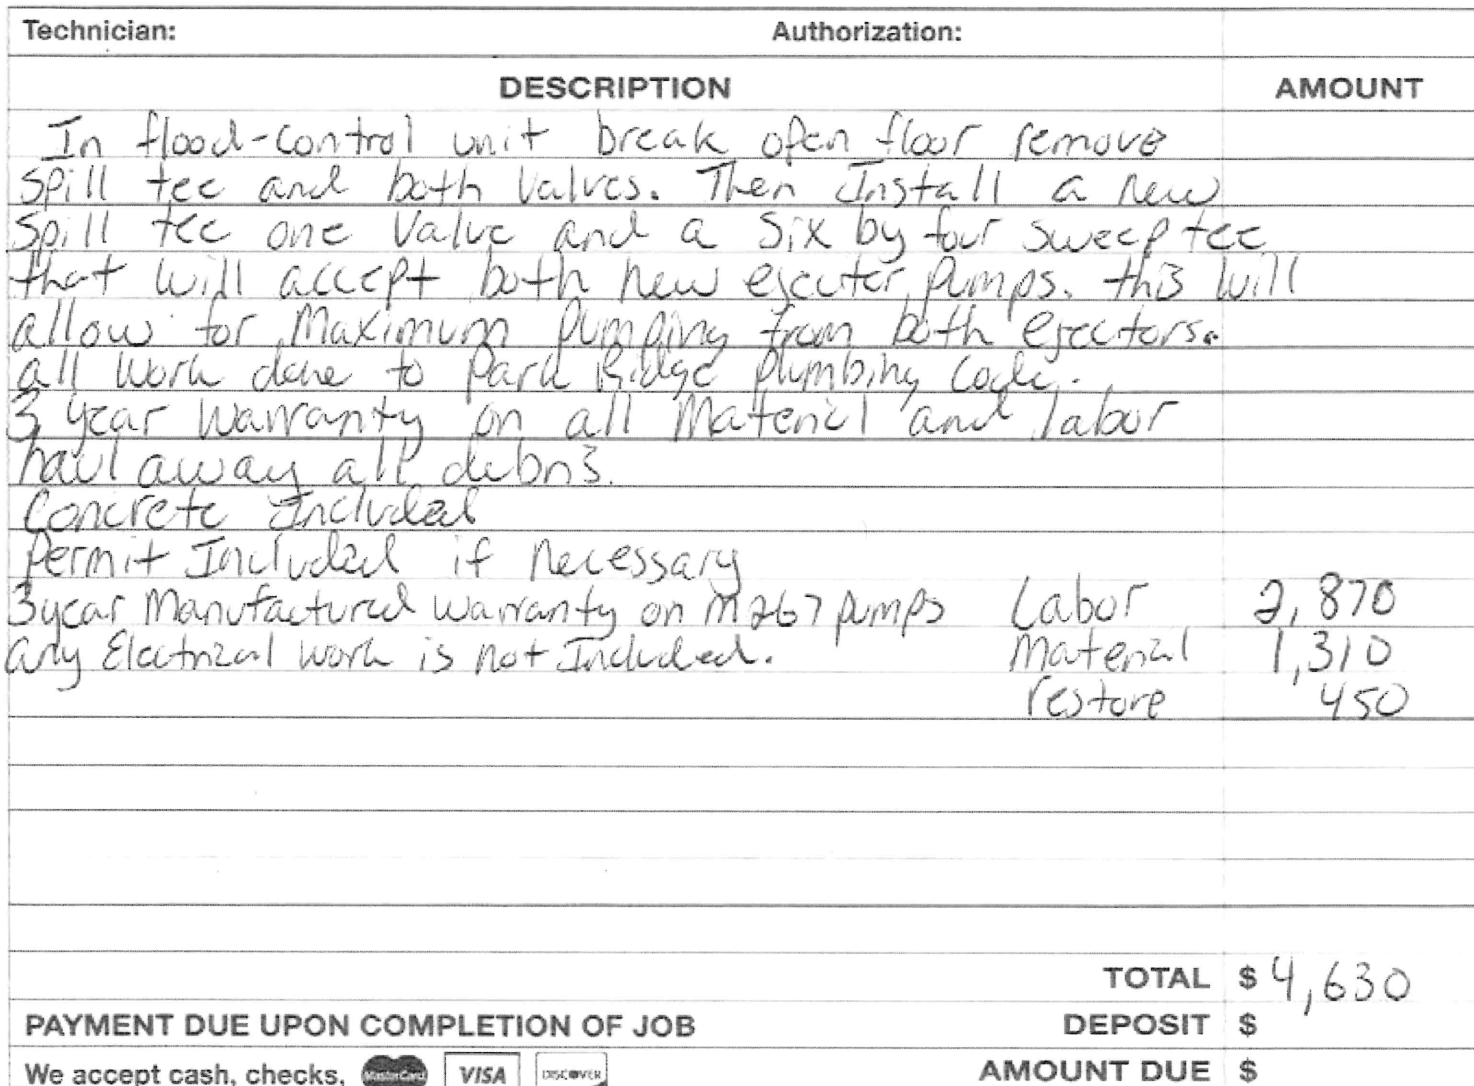 Technician: Authorization:
DESCRIPTION AMOUNT
In flood-control unit break open floor remove
spill tee and both valves. Then Install a new
spill tee one valve and a six by four sweep tee
that will accept both new ejector pumps. this will
allow for maximum pumping from both ejectors.
all work done to Park Ridge plumbing code.
3 year warranty on all material and labor
haul away all debris.
Concrete Included
Permit Included if necessary
3 year Manufactured warranty on M267 pumps Labor 2,870
any Electrical work is not Included. Material 1,310
restore 450
TOTAL $ 4,630
PAYMENT DUE UPON COMPLETION OF JOB DEPOSIT $
We accept cash, checks, MasterCard VISA DISCOVER AMOUNT DUE $